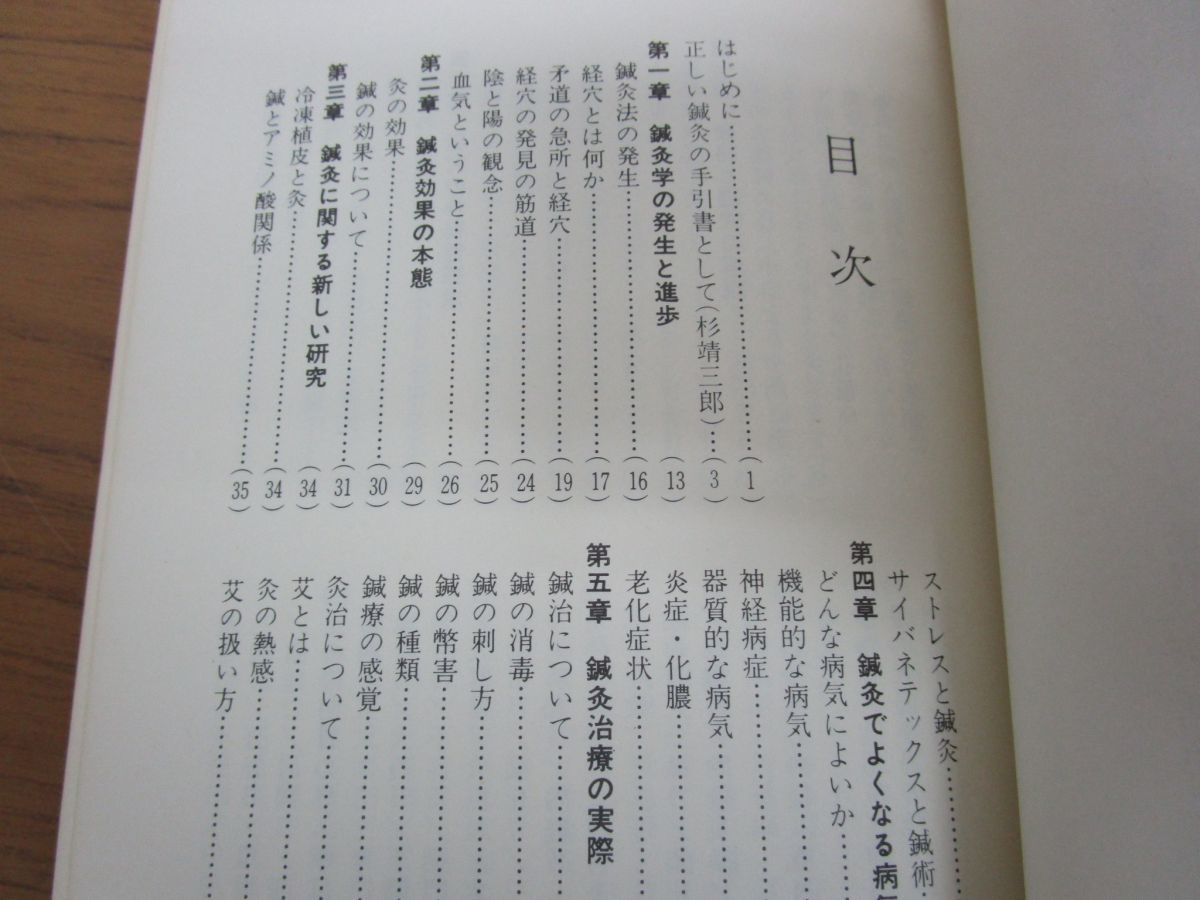 目次
はじめに……(1)
正しい鍼灸の手引書として(杉靖三郎)…(3)
第一章 鍼灸学の発生と進歩 (13)
鍼灸法の発生……(16)
経穴とは何か……(17)
矛道の急所と経穴……(19)
経穴の発見の筋道……(24)
陰と陽の観念……(25)
血気ということ……(26)
第二章 鍼灸効果の本態 (29)
灸の効果……(30)
鍼の効果について……(31)
第三章 鍼灸に関する新しい研究 (34)
冷凍植皮と灸……(34)
鍼とアミノ酸関係……(35)
ストレスと鍼灸……
サイバネテックスと鍼術…
第四章 鍼灸でよくなる病気
どんな病気によいか…
機能的な病気……
神経病症……
器質的な病気……
炎症・化膿……
老化症状……
第五章 鍼灸治療の実際
鍼治について……
鍼の消毒……
鍼の刺し方……
鍼の幣害……
鍼の種類……
鍼療の感覚……
灸治について……
艾とは……
灸の熱感……
艾の扱い方……